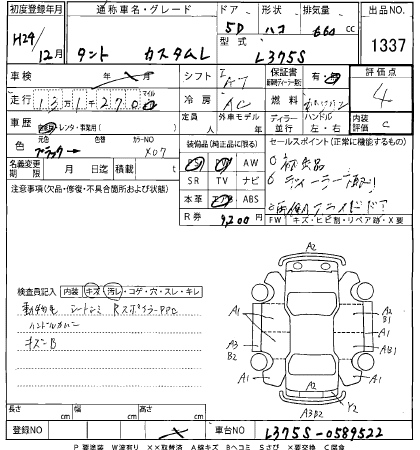 初度登録年月 通称車名・グレード ドア 形状 排気量 出品NO.
H24 12月 タント カスタムL 5D ハコ 660 cc 1337
型式 L375S
車検 年 月 シフト IAT 保証書 有・無 評価点 4
走行 マイル 冷房 AC 燃料 ガソリン
車歴 自家用・レンタ・事業用( ) 定員 人 外車モデル 年 ディーラー 並行 ハンドル 左・右 内装評価 C
色 元色 ブラック→ 色替 カラーNO X07
装備品(純正品に限る) セールスポイント(正常に機能するもの)
名義変更期限 月 日迄 積載 t
PS PW AW
SR TV ナビ
本革 エアB ABS
R券 9,200円
注意事項(欠品・修復・不具合箇所および状態)
FW キズ・ヒビ割・リペア跡・X要
検査員記入 内装 キズ・汚レ・コゲ・穴・スレ・キレ
シートシミ RスポイラーPPC
ハンドルカバー
キズ凹B
A2
A1 A1 A3 B2 A1
A2 B1 A1 AB1 A1
A2
A3B2 Y2
長さ cm 幅 cm 高さ cm
登録NO 車台NO L375S-0589522
P要塗装 W波有り XX取替済 A線キズ Bヘコミ Sさび X要交換 C腐食